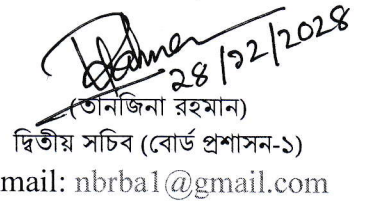 ২৪/১২/২০২৪
(তানজিনা রহমান)
দ্বিতীয় সচিব (বোর্ড প্রশাসন-১)
mail: nbrba1@gmail.com